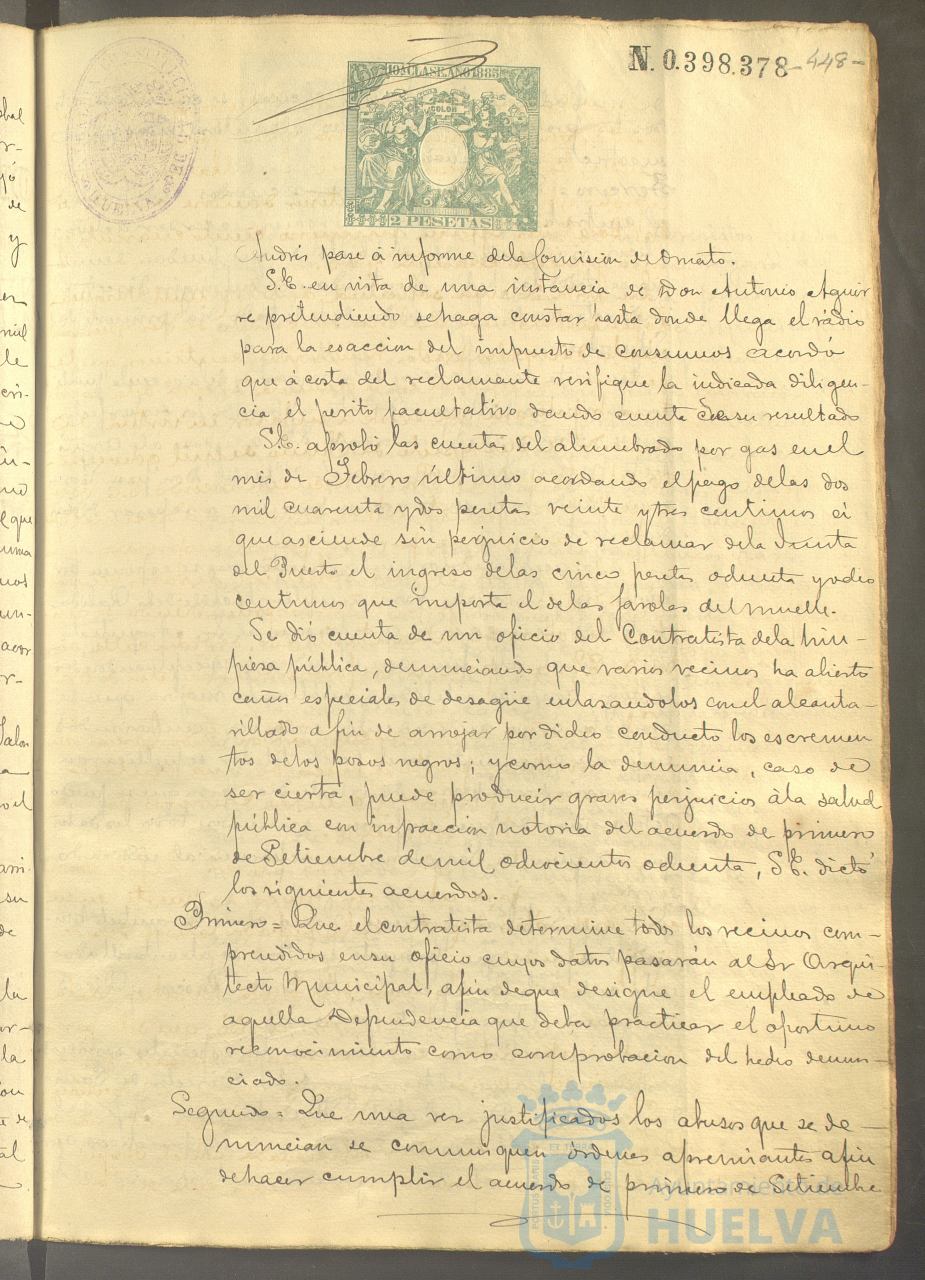 N. 0.398.378 - 448 -
10A CLASE. AÑO 1885
COLON
2 PESETAS
HUELVA
Andrés pase á informe dela Comision de Ornato.
S.E. en vista de una instancia de Don Antonio Aguir
re pretendiendo sehaga constar hasta donde llega el rádio
para la esaccion del impuesto de consumos acordó
que á costa del reclamante verifique la indicada diligen-
cia el perito facultativo dando cuenta desu resultado
S.E. aprobó las cuentas del alumbrado por gas enel
mes de Febrero último acordando elpago delas dos
mil cuarenta ydos pesetas veinte ytres centimos á
que asciende sin perjuicio de reclamar dela Junta
del Puerto el ingreso delas cinco pesetas ochenta yocho
centimos que importa el delas farolas del muelle.
Se dió cuenta de un oficio del Contratista dela lim-
piesa pública, denunciando que varios vecinos ha abierto
caños especiales de desagüe enlasandolos conel alcanta-
rillado afin de arrojar por dicho conducto los escremen
tos delos posos negros; ycomo la denuncia, caso de
ser cierta, puede producir graves perjuicios ála salud
pública con infraccion notoria del acuerdo de primero
de Setiembre demil ochocientos ochenta, S.E. dictó
los siguientes acuerdos.
Primero = Que elcontratista determine todos los vecinos com-
prendidos ensu oficio cuyos datos pasarán al Sr Arqui-
tecto Municipal, afin deque designe el empleado de
aquella Dependencia que deba practicar el oportuno
reconocimiento como comprobacion del hecho denun-
ciado.
Segundo = Que una ver justificados los abusos que se de-
nuncian se comuniquen órdenes apremiantes afin
dehacer cumplir el acuerdo de primero de Setiembre
Ayuntamiento de
HUELVA